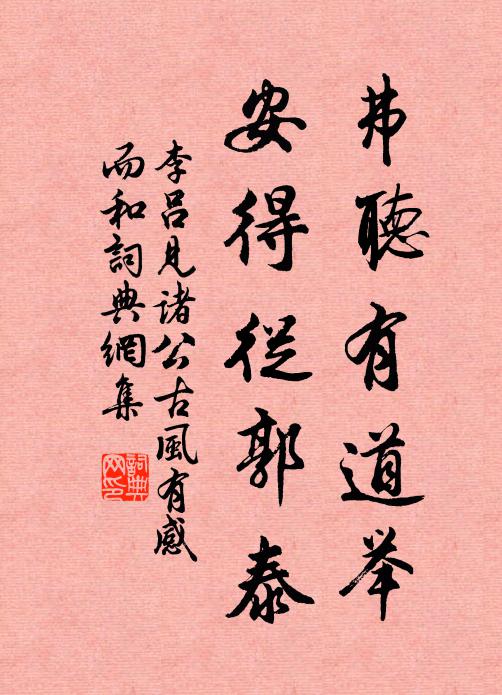 弗聽有道举
安得從郭泰
李呂見諸公古風有感
而和詞典網集
詞典
网印